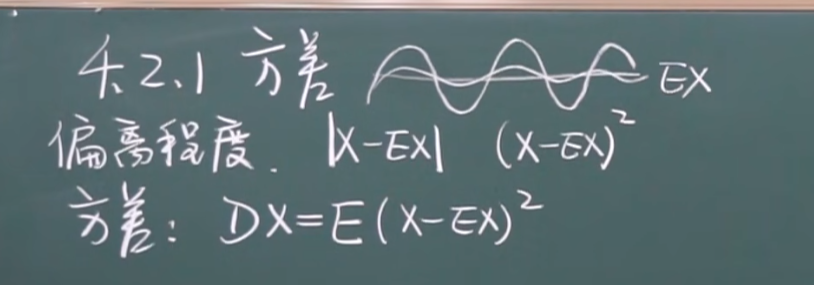 4.2.1 方差 EX
偏离程度. |X-EX| (X-EX)²
方差: DX=E(X-EX)²